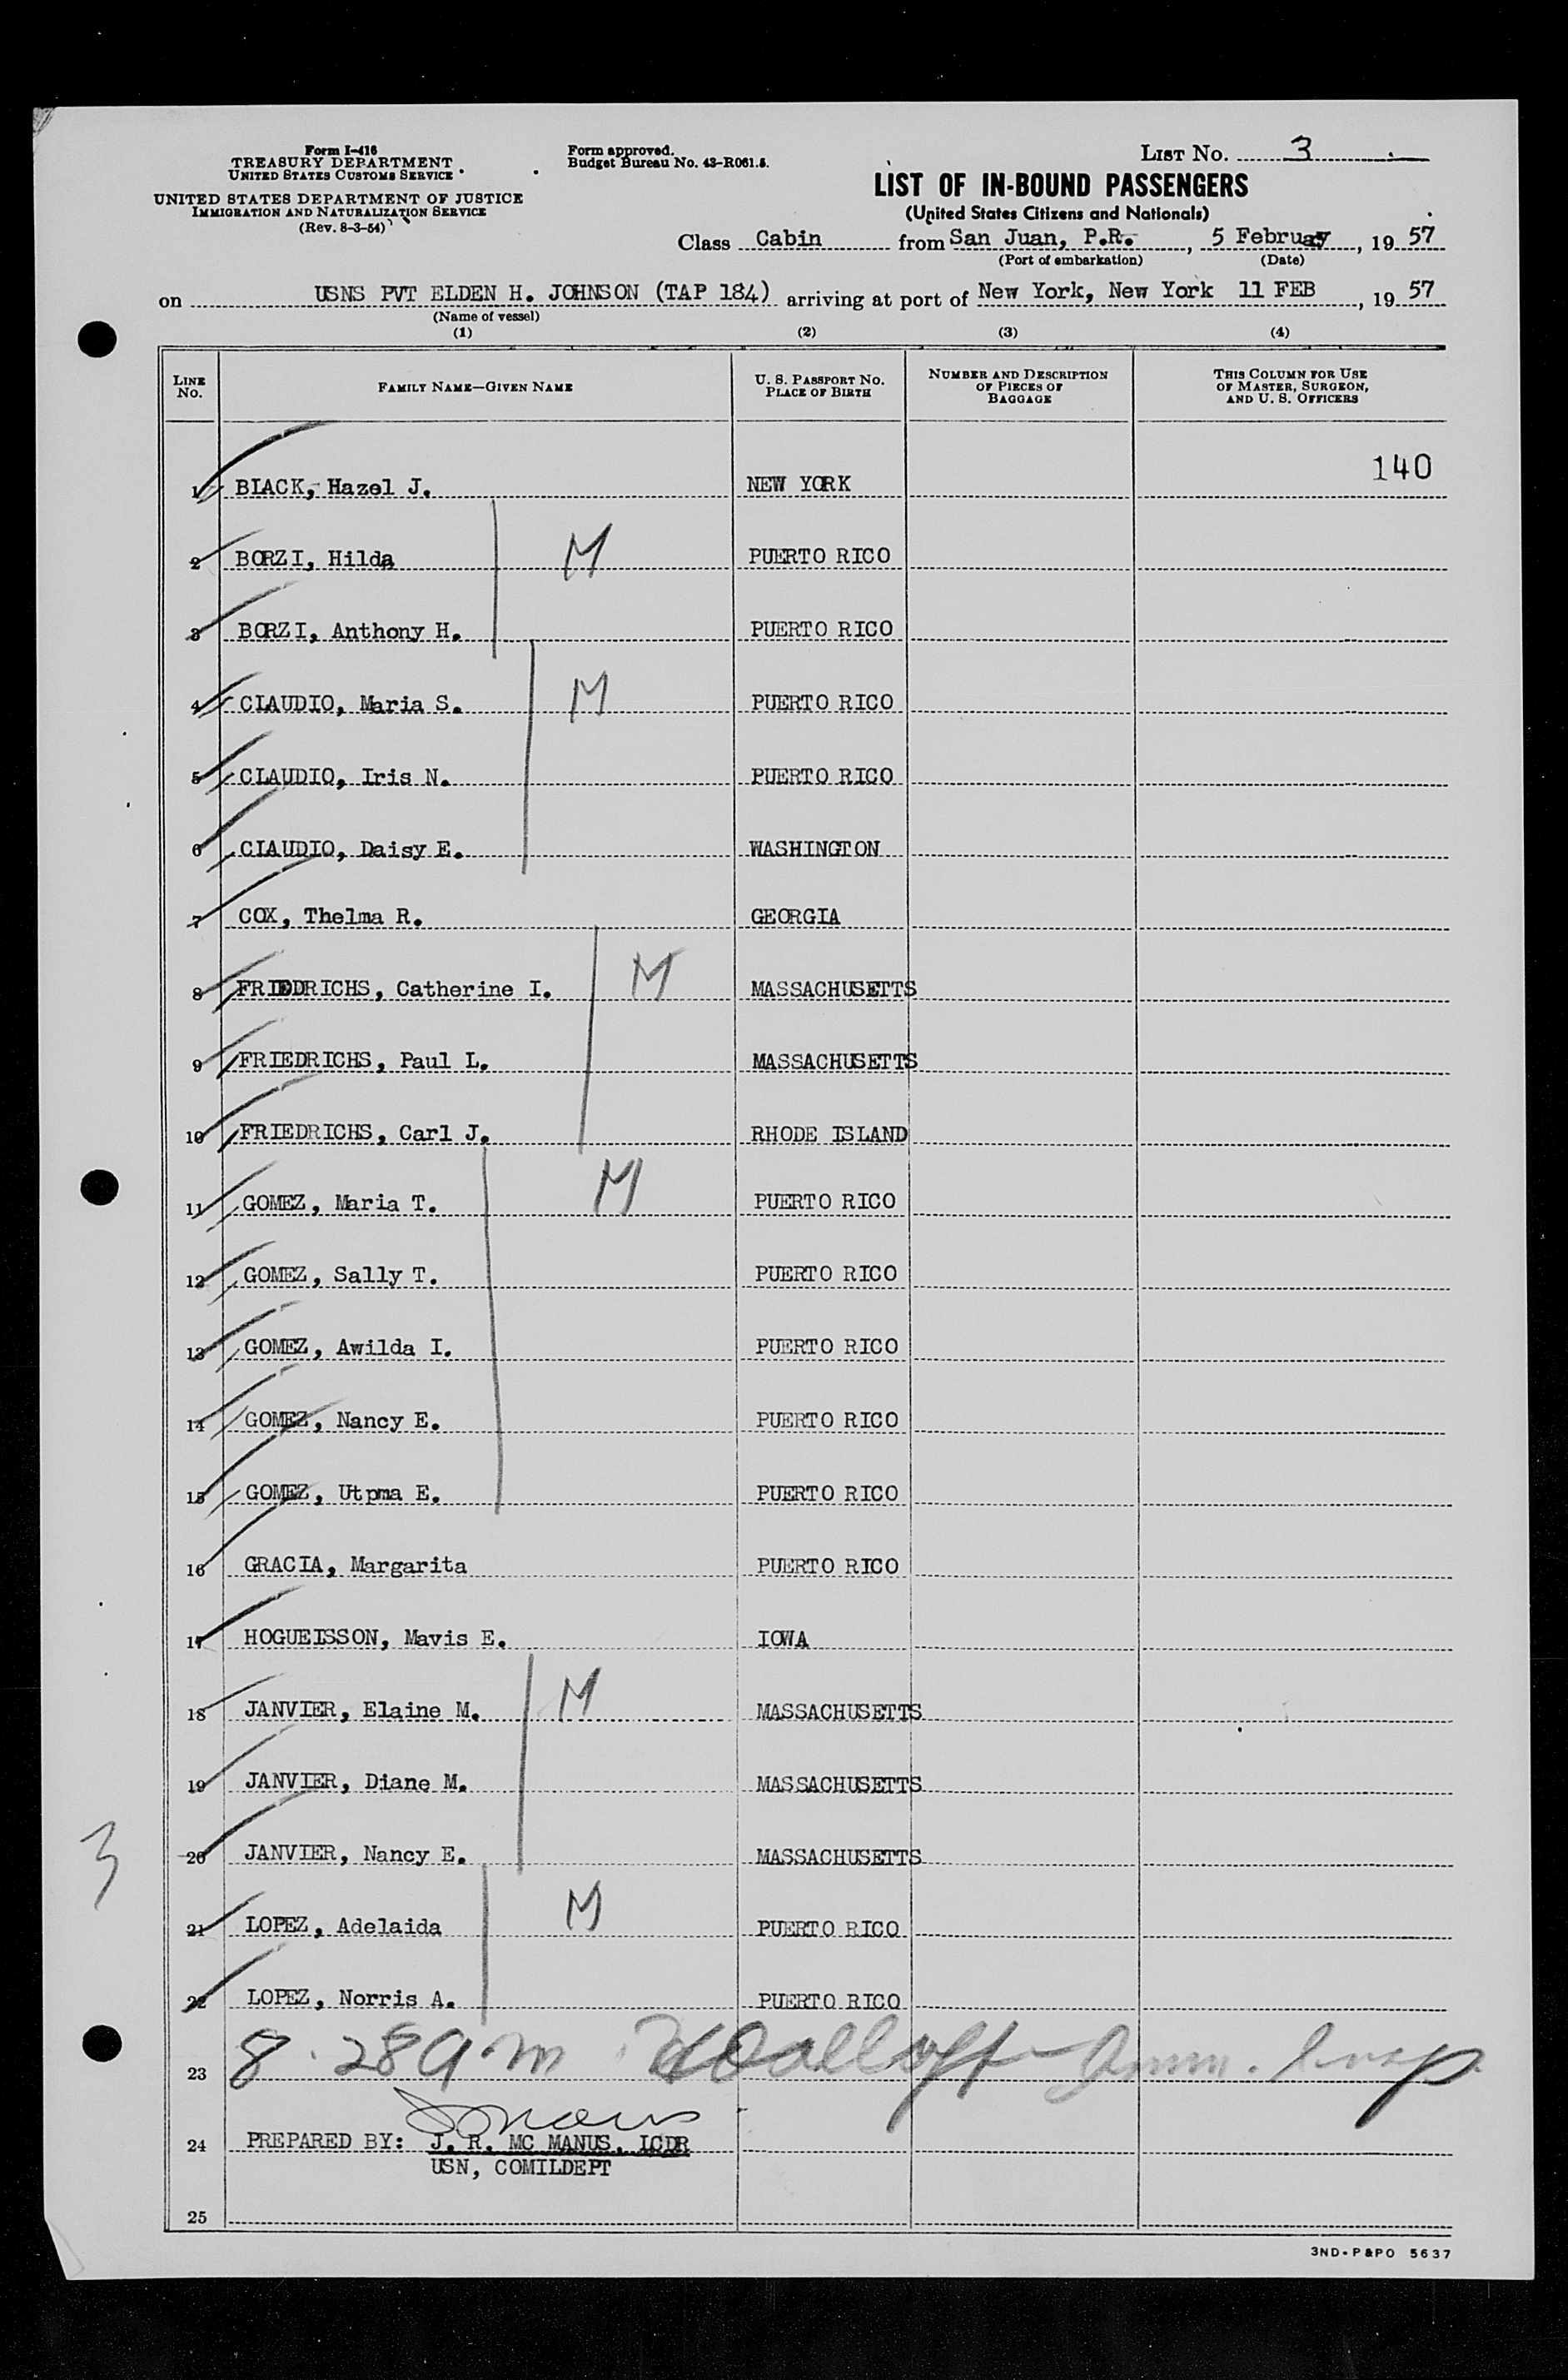 Form I-416
TREASURY DEPARTMENT
UNITED STATES CUSTOMS SERVICE
UNITED STATES DEPARTMENT OF JUSTICE
IMMIGRATION AND NATURALIZATION SERVICE
(Rev. 8-3-54)
Form approved.
Budget Bureau No. 43-R061.5.
LIST No. 3
LIST OF IN-BOUND PASSENGERS
(United States Citizens and Nationals)
Class Cabin from San Juan, P.R., 5 February, 19 57
(Port of embarkation) (Date)
on USNS PVT ELDEN H. JOHNSON (TAP 184) arriving at port of New York, New York 11 FEB, 19 57
(Name of vessel)
(1) (2) (3) (4)
LINE No. FAMILY NAME—GIVEN NAME U. S. PASSPORT NO. PLACE OF BIRTH NUMBER AND DESCRIPTION OF PIECES OF BAGGAGE THIS COLUMN FOR USE OF MASTER, SURGEON, AND U. S. OFFICERS
140
1 BLACK, Hazel J. NEW YORK
2 BORZI, Hilda M PUERTO RICO
3 BORZI, Anthony H. PUERTO RICO
4 CLAUDIO, Maria S. M PUERTO RICO
5 CLAUDIO, Iris N. PUERTO RICO
6 CLAUDIO, Daisy E. WASHINGTON
7 COX, Thelma R. GEORGIA
8 FRIEDRICHS, Catherine I. M MASSACHUSETTS
9 FRIEDRICHS, Paul L. MASSACHUSETTS
10 FRIEDRICHS, Carl J. RHODE ISLAND
11 GOMEZ, Maria T. M PUERTO RICO
12 GOMEZ, Sally T. PUERTO RICO
13 GOMEZ, Awilda I. PUERTO RICO
14 GOMEZ, Nancy E. PUERTO RICO
15 GOMEZ, Utpma E. PUERTO RICO
16 GRACIA, Margarita PUERTO RICO
17 HOGUEISSON, Mavis E. IOWA
18 JANVIER, Elaine M. M MASSACHUSETTS
19 JANVIER, Diane M. MASSACHUSETTS
3
20 JANVIER, Nancy E. MASSACHUSETTS
21 LOPEZ, Adelaida M PUERTO RICO
22 LOPEZ, Norris A. PUERTO RICO
23 8.28 a.m Imm. Insp.
24 PREPARED BY: J. R. MC MANUS, LCDR
USN, COMILDEPT
25
3ND-P&PO 5637